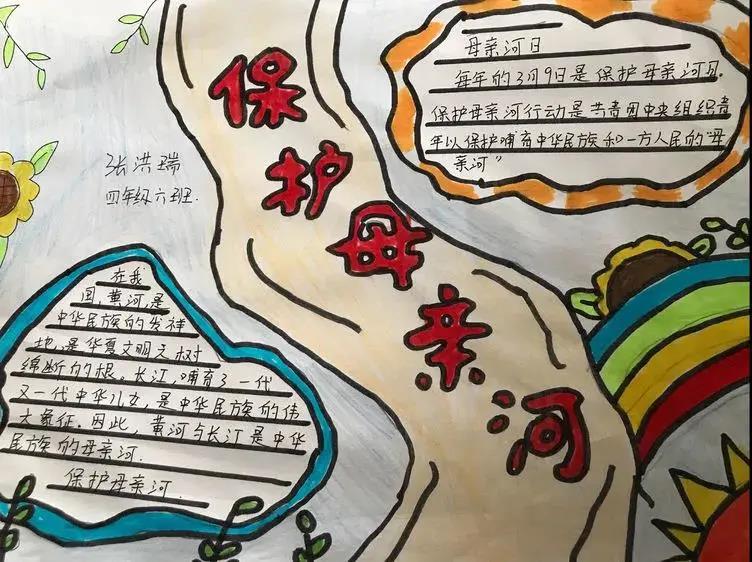 保护母亲河
张洪瑞
四年级六班.
母亲河日
每年的3月9日是保护母亲河日.
保护母亲河行动是共青团中央组织青
年以保护哺育中华民族和一方人民的“母
亲河”
在我
国,黄河,是
中华民族的发祥
地,是华夏文明无树
绵断的根。长江,哺育了一代
又一代中华儿女,是中华民族的伟
大象征.因此,黄河与长江是中华
民族的母亲河.
保护母亲河.